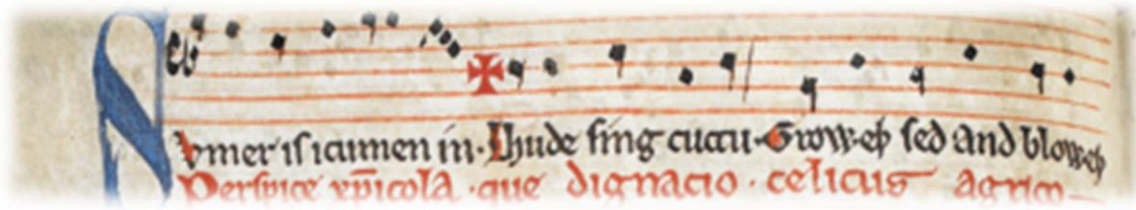 Svmer is icumen in. Lhude sing cuccu. Groweþ sed and bloweþ
Perspice xp̄icola .que dignacio. celicus agrico